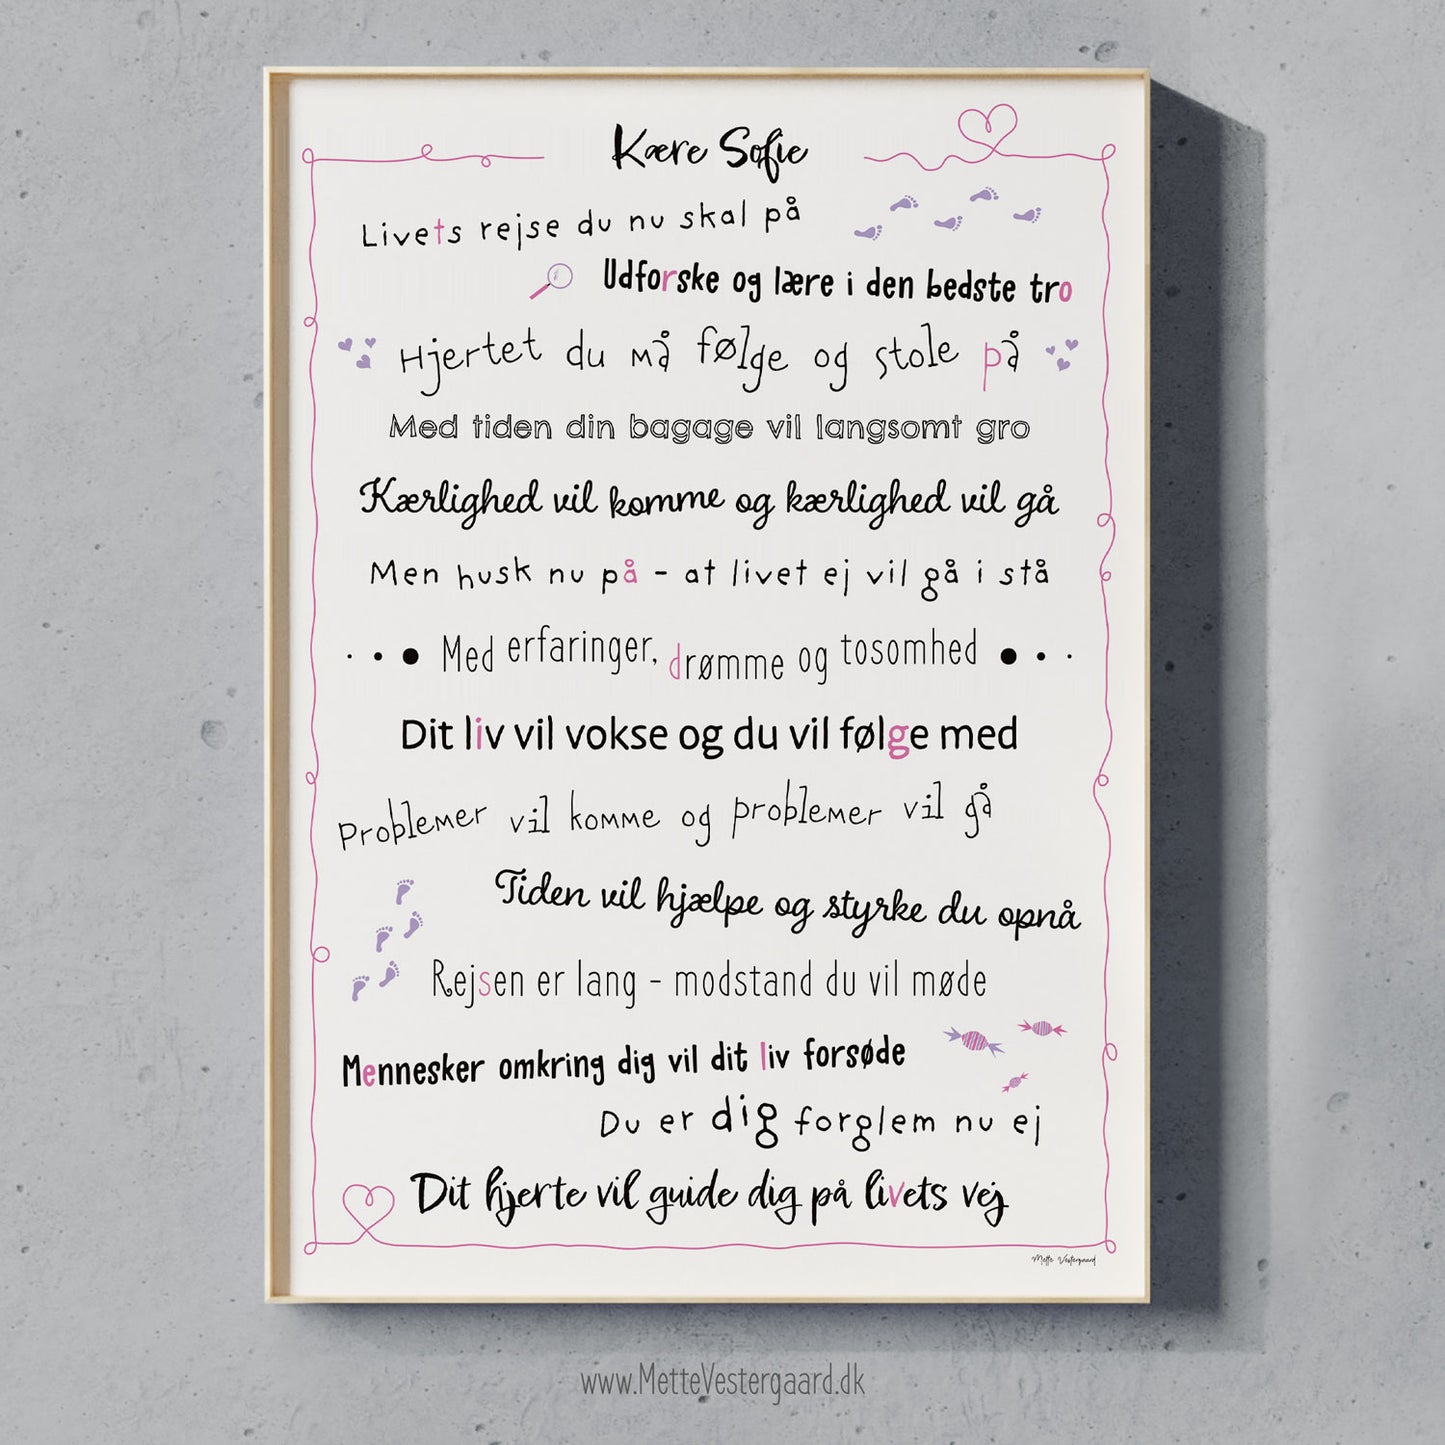 Kære Sofie
Livets rejse du nu skal på
Udforske og lære i den bedste tro
Hjertet du må følge og stole på
Med tiden din bagage vil langsomt gro
Kærlighed vil komme og kærlighed vil gå
Men husk nu på - at livet ej vil gå i stå
Med erfaringer, drømme og tosomhed
Dit liv vil vokse og du vil følge med
Problemer vil komme og problemer vil gå
Tiden vil hjælpe og styrke du opnå
Rejsen er lang - modstand du vil møde
Mennesker omkring dig vil dit liv forsøde
Du er dig forglem nu ej
Dit hjerte vil guide dig på livets vej
Mette Vestergaard
www.MetteVestergaard.dk